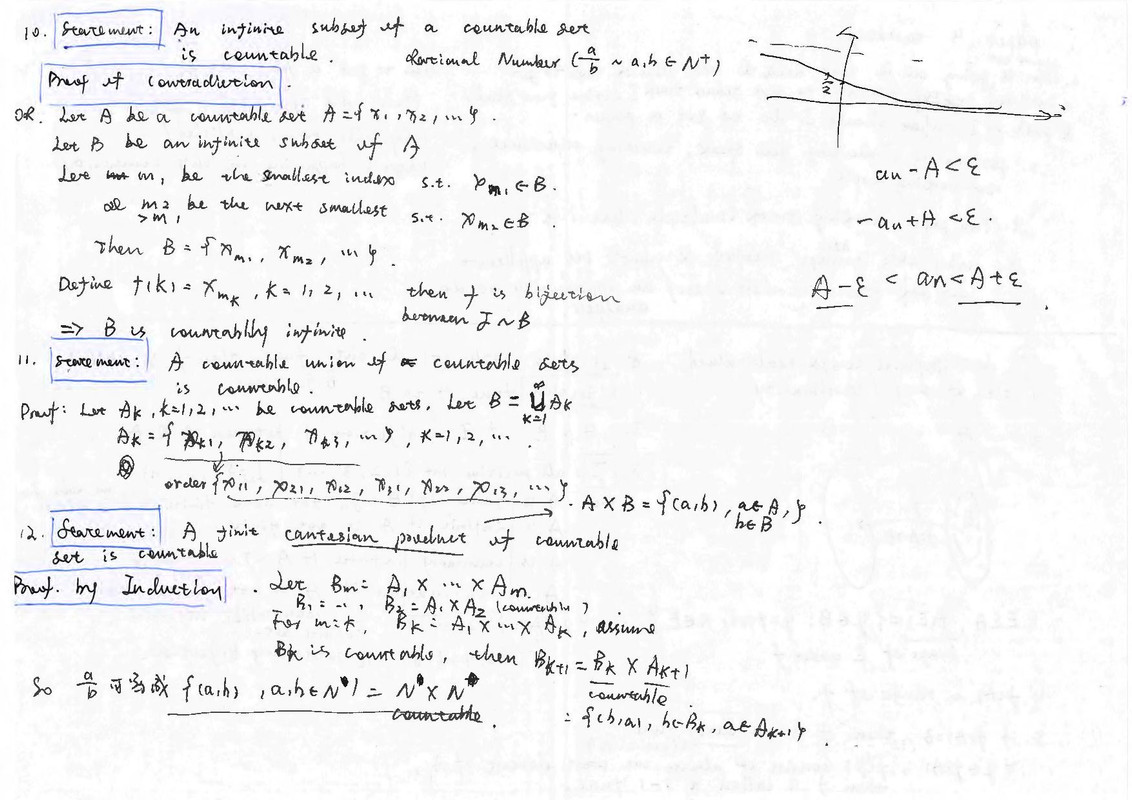 10. Statement: An infinite subset of a countable set
is countable. Rational Number (a/b ~ a,b ∈ N⁺)
Proof of Contradiction.
OR. Let A be a countable set A = {x₁, x₂, ...}.
Let B be an infinite subset of A
Let m₁ be the smallest index s.t. x_m₁ ∈ B.
m₂ be the next smallest s.t. x_m₂ ∈ B.
>m₁
Then B = {x_m₁, x_m₂, ...}.
Define f(k) = x_m_k, k=1, 2, ... then f is bijection
between J ~ B
=> B is countablly infinite.
11. Statement: A countable union of countable sets
is countable.
Proof: Let A_k, k=1,2, ... be countable sets. Let B = ∞⋃k=1 A_k
A_k = {x_k1, x_k2, x_k3, ...}, k=1, 2, ...
order {x₁₁, x₂₁, x₁₂, x₃₁, x₂₂, x₁₃, ...}.
A × B = {(a,b), a∈A, b∈B}.
12. Statement: A finit cantesian product of countable
set is countable
Proof. by Induction. Let Bm = A₁ × ... × Am.
B₁ = ..., B₂ = A₁ × A₂ (countable).
For m=k, B_k = A₁ × ... × A_k, assume
B_k is countable, then B_k+1 = B_k × A_k+1
countable.
= {(b,a), b∈B_k, a∈A_k+1}.
So a/b 可写成 {(a,b), a,b∈N} = N × N
countable.
1/2
an - A < ε
- an + A < ε.
A - ε < an < A + ε.